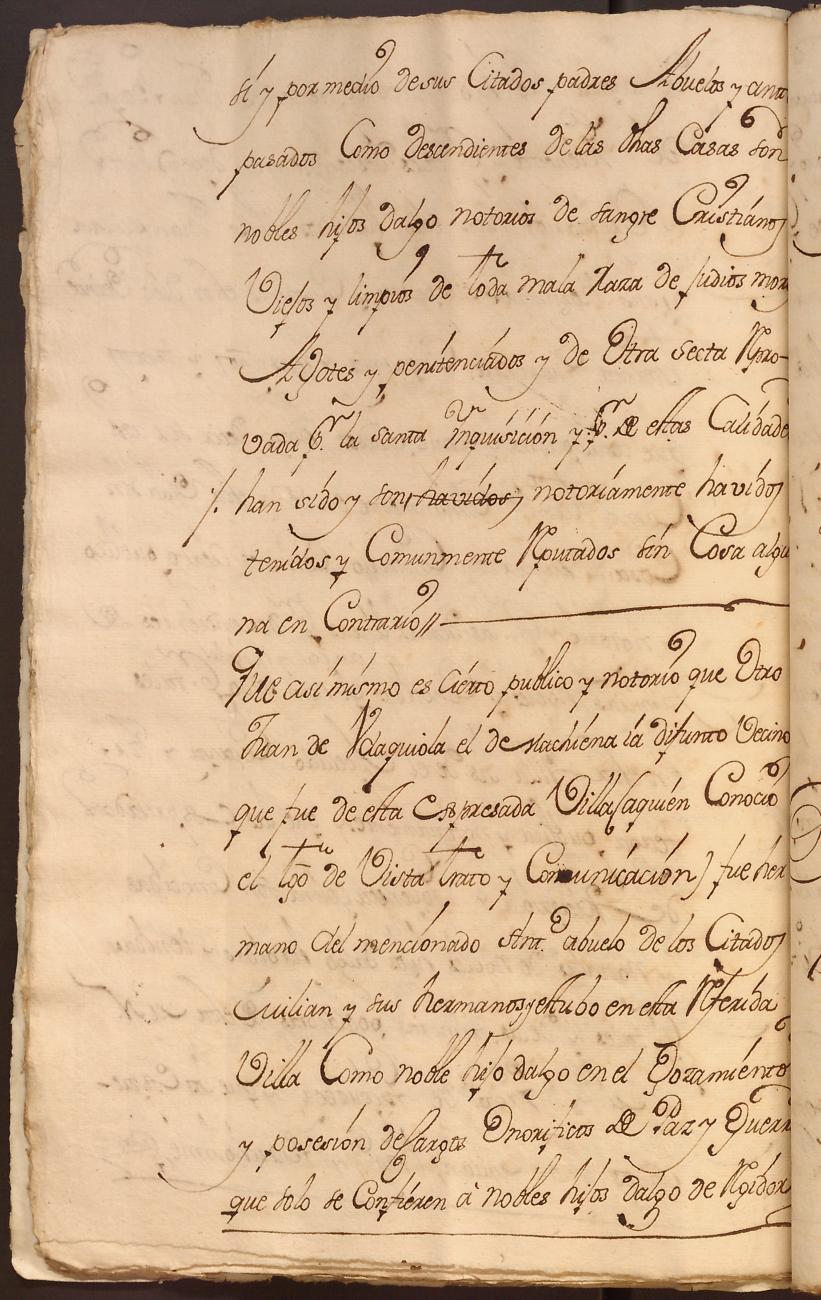 sí y por medio de sus Citados padres Abuelos y ante
pasados Como descendientes de las dhas Casas son
nobles hijos dalgo notorios de sangre Cristianos
Viejos y limpios de toda mala Raza de judios moros
Agotes y penitenciados y de Otra secta Repro-
vada pr. la santa Inquisición y pr. de estas Calidades
/. han sido y son havidos notoriamente havidos
tenidos y Comunmente Reputados sin Cosa algu
na en Contrario //
Que asi mismo es cierto publico y notorio que Otro
Juan de Olaquiola el de Machiena ia difunto Vecino
que fue de esta Espresada Villa (aquien Conocio
el tgo. de Vista trato y Comunicación) fue her
mano del mencionado abuelo de los Citados
Cuilian y sus hermanos y estubo en esta Referida
Villa Como noble hijo dalgo en el Gozamiento
y posesión de Cargos Onorificos de Paz y Guerra
que solo se Confieren à nobles hijos dalgo de Regidor